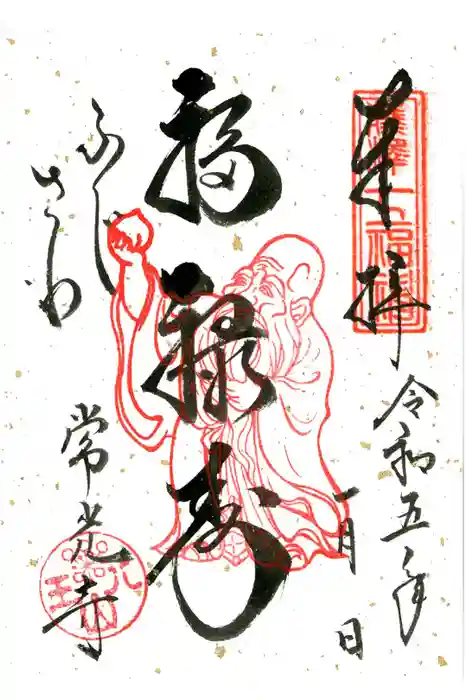 奉拝
令和五年
一月 日
福禄寿
ふじさわ
常光寺